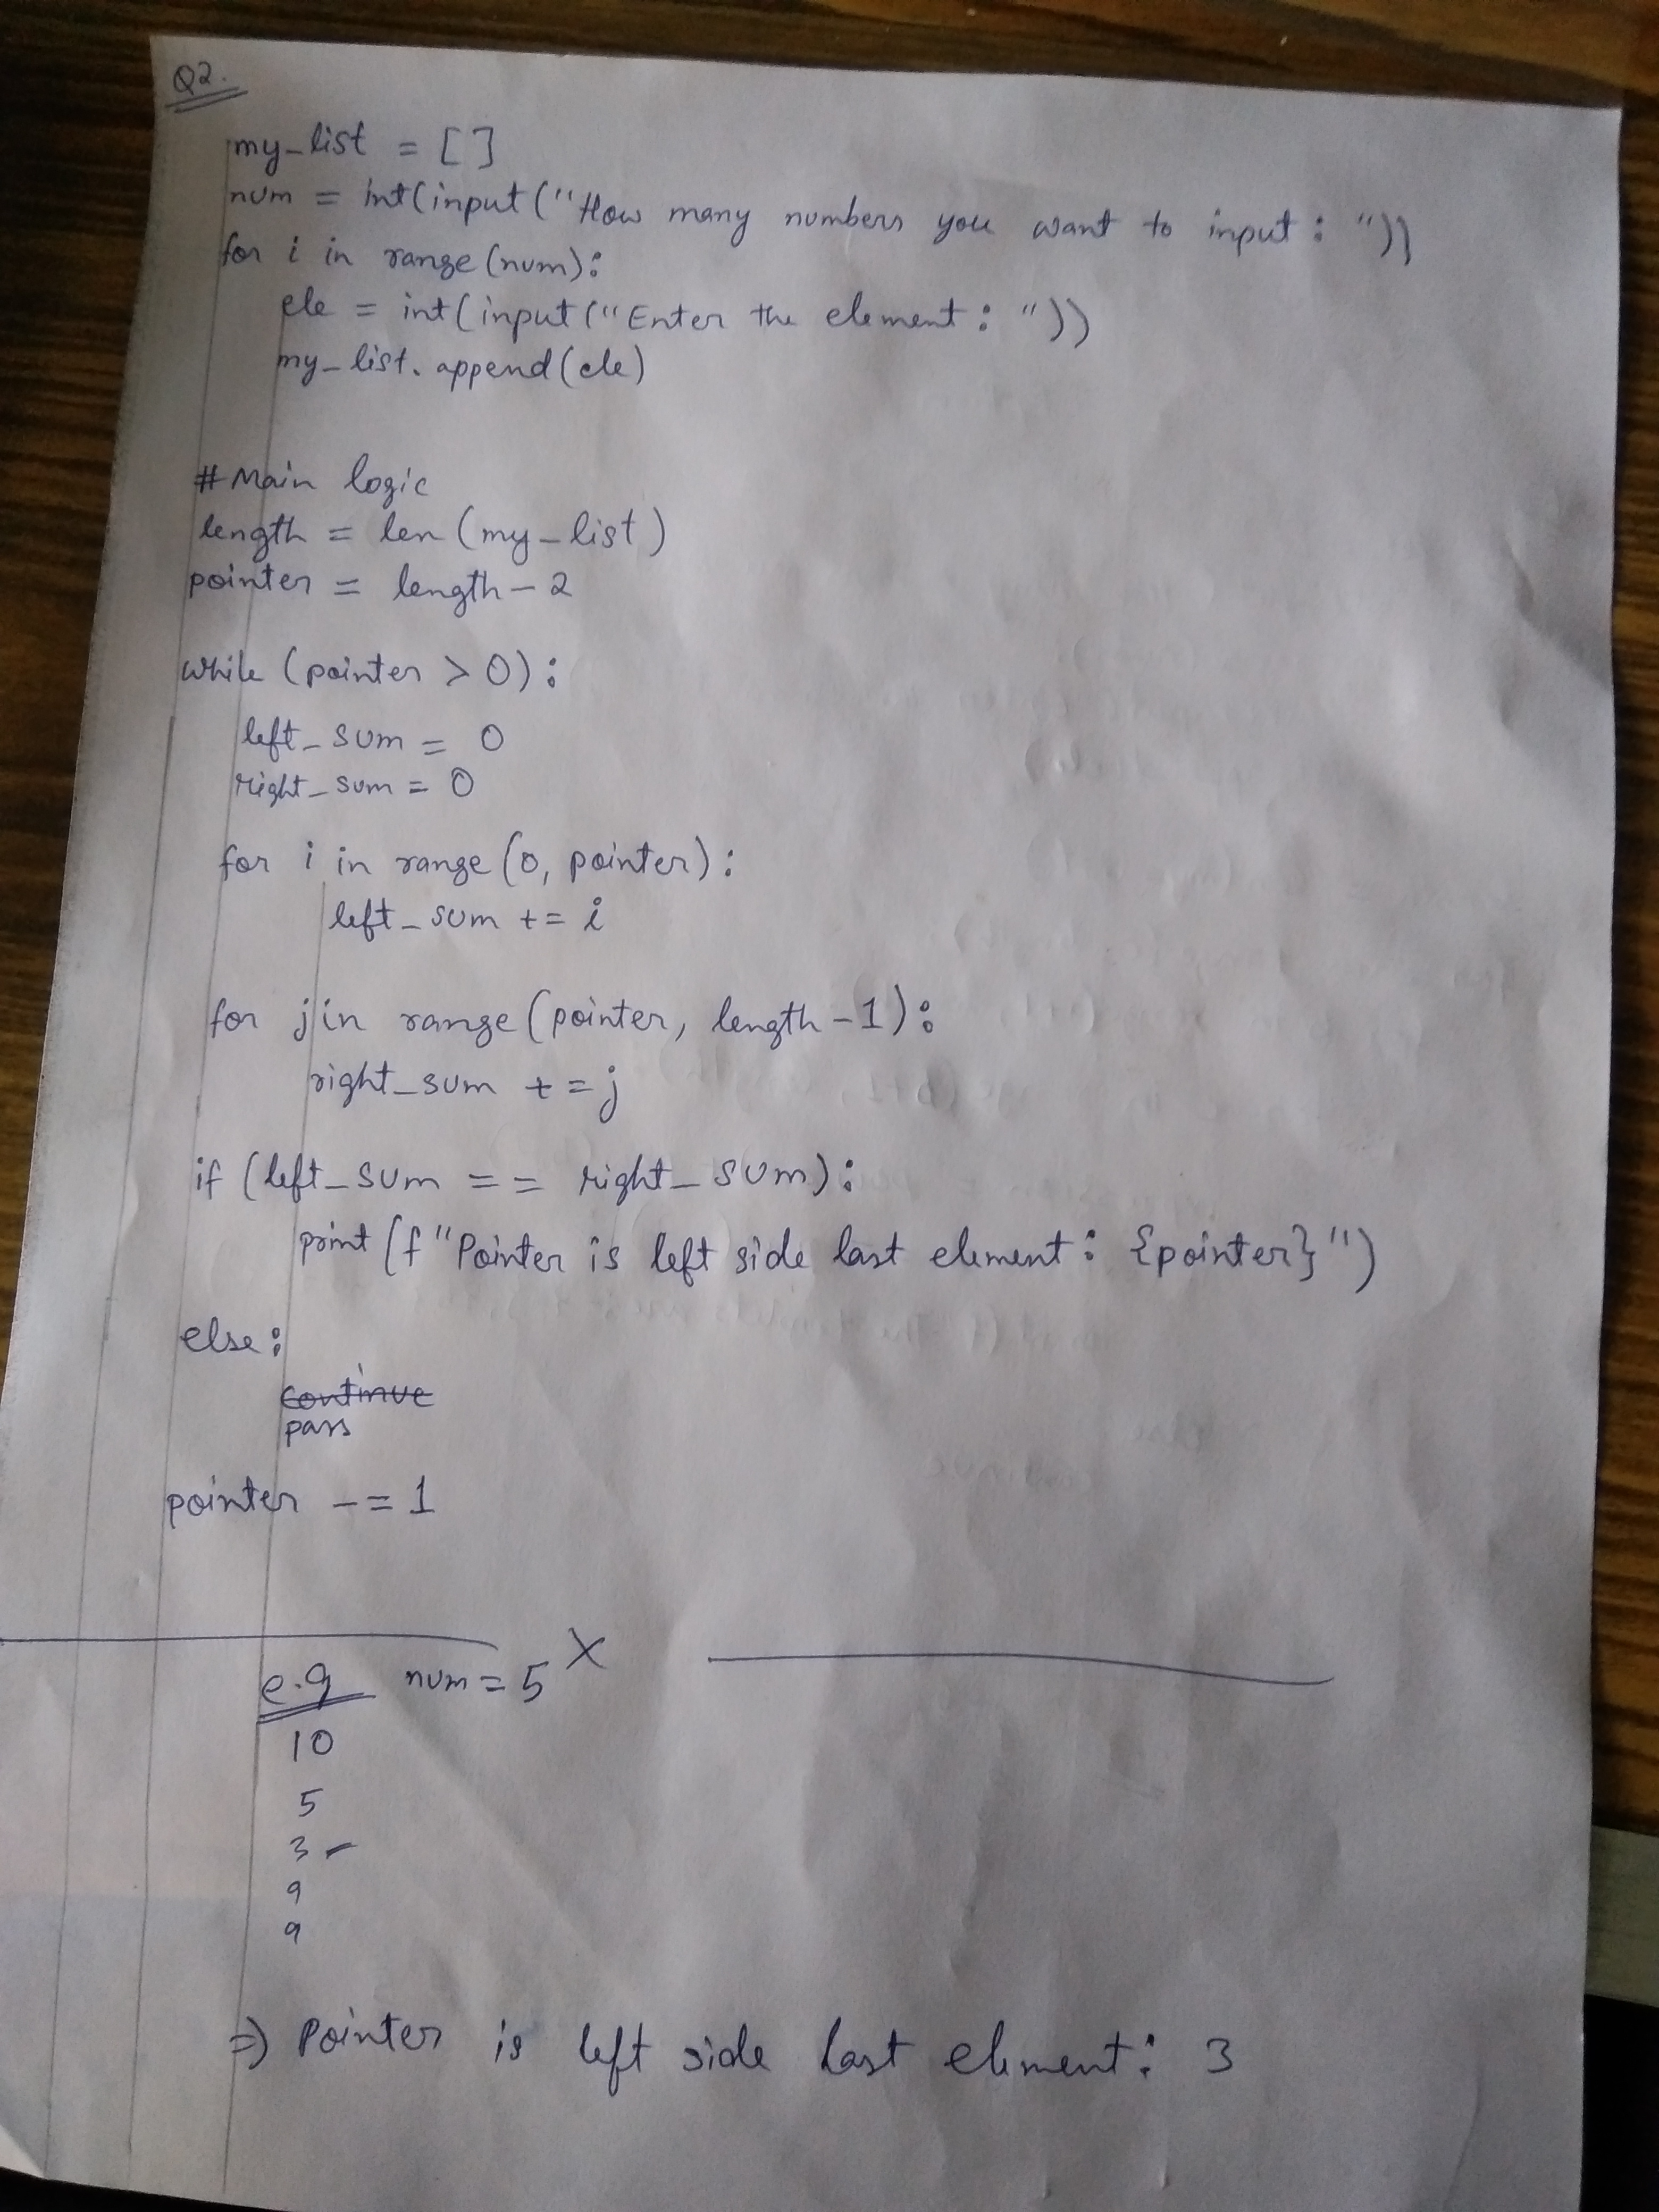 Q2.
my_list = []
num = int(input("How many numbers you want to input : "))
for i in range(num):
ele = int(input("Enter the element : "))
my_list.append(ele)
#Main logic
length = len(my_list)
pointer = length-2
while (pointer > 0):
left_sum = 0
right_sum = 0
for i in range(0, pointer):
left_sum += i
for j in range(pointer, length-1):
right_sum += j
if (left_sum == right_sum):
print(f"Pointer is left side last element: {pointer}")
else:
continue
pass
pointer -= 1
X
e.g num = 5
10
5
3 -
9
9
=> Pointer is left side last element: 3